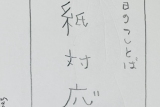 日のことば
紙対応